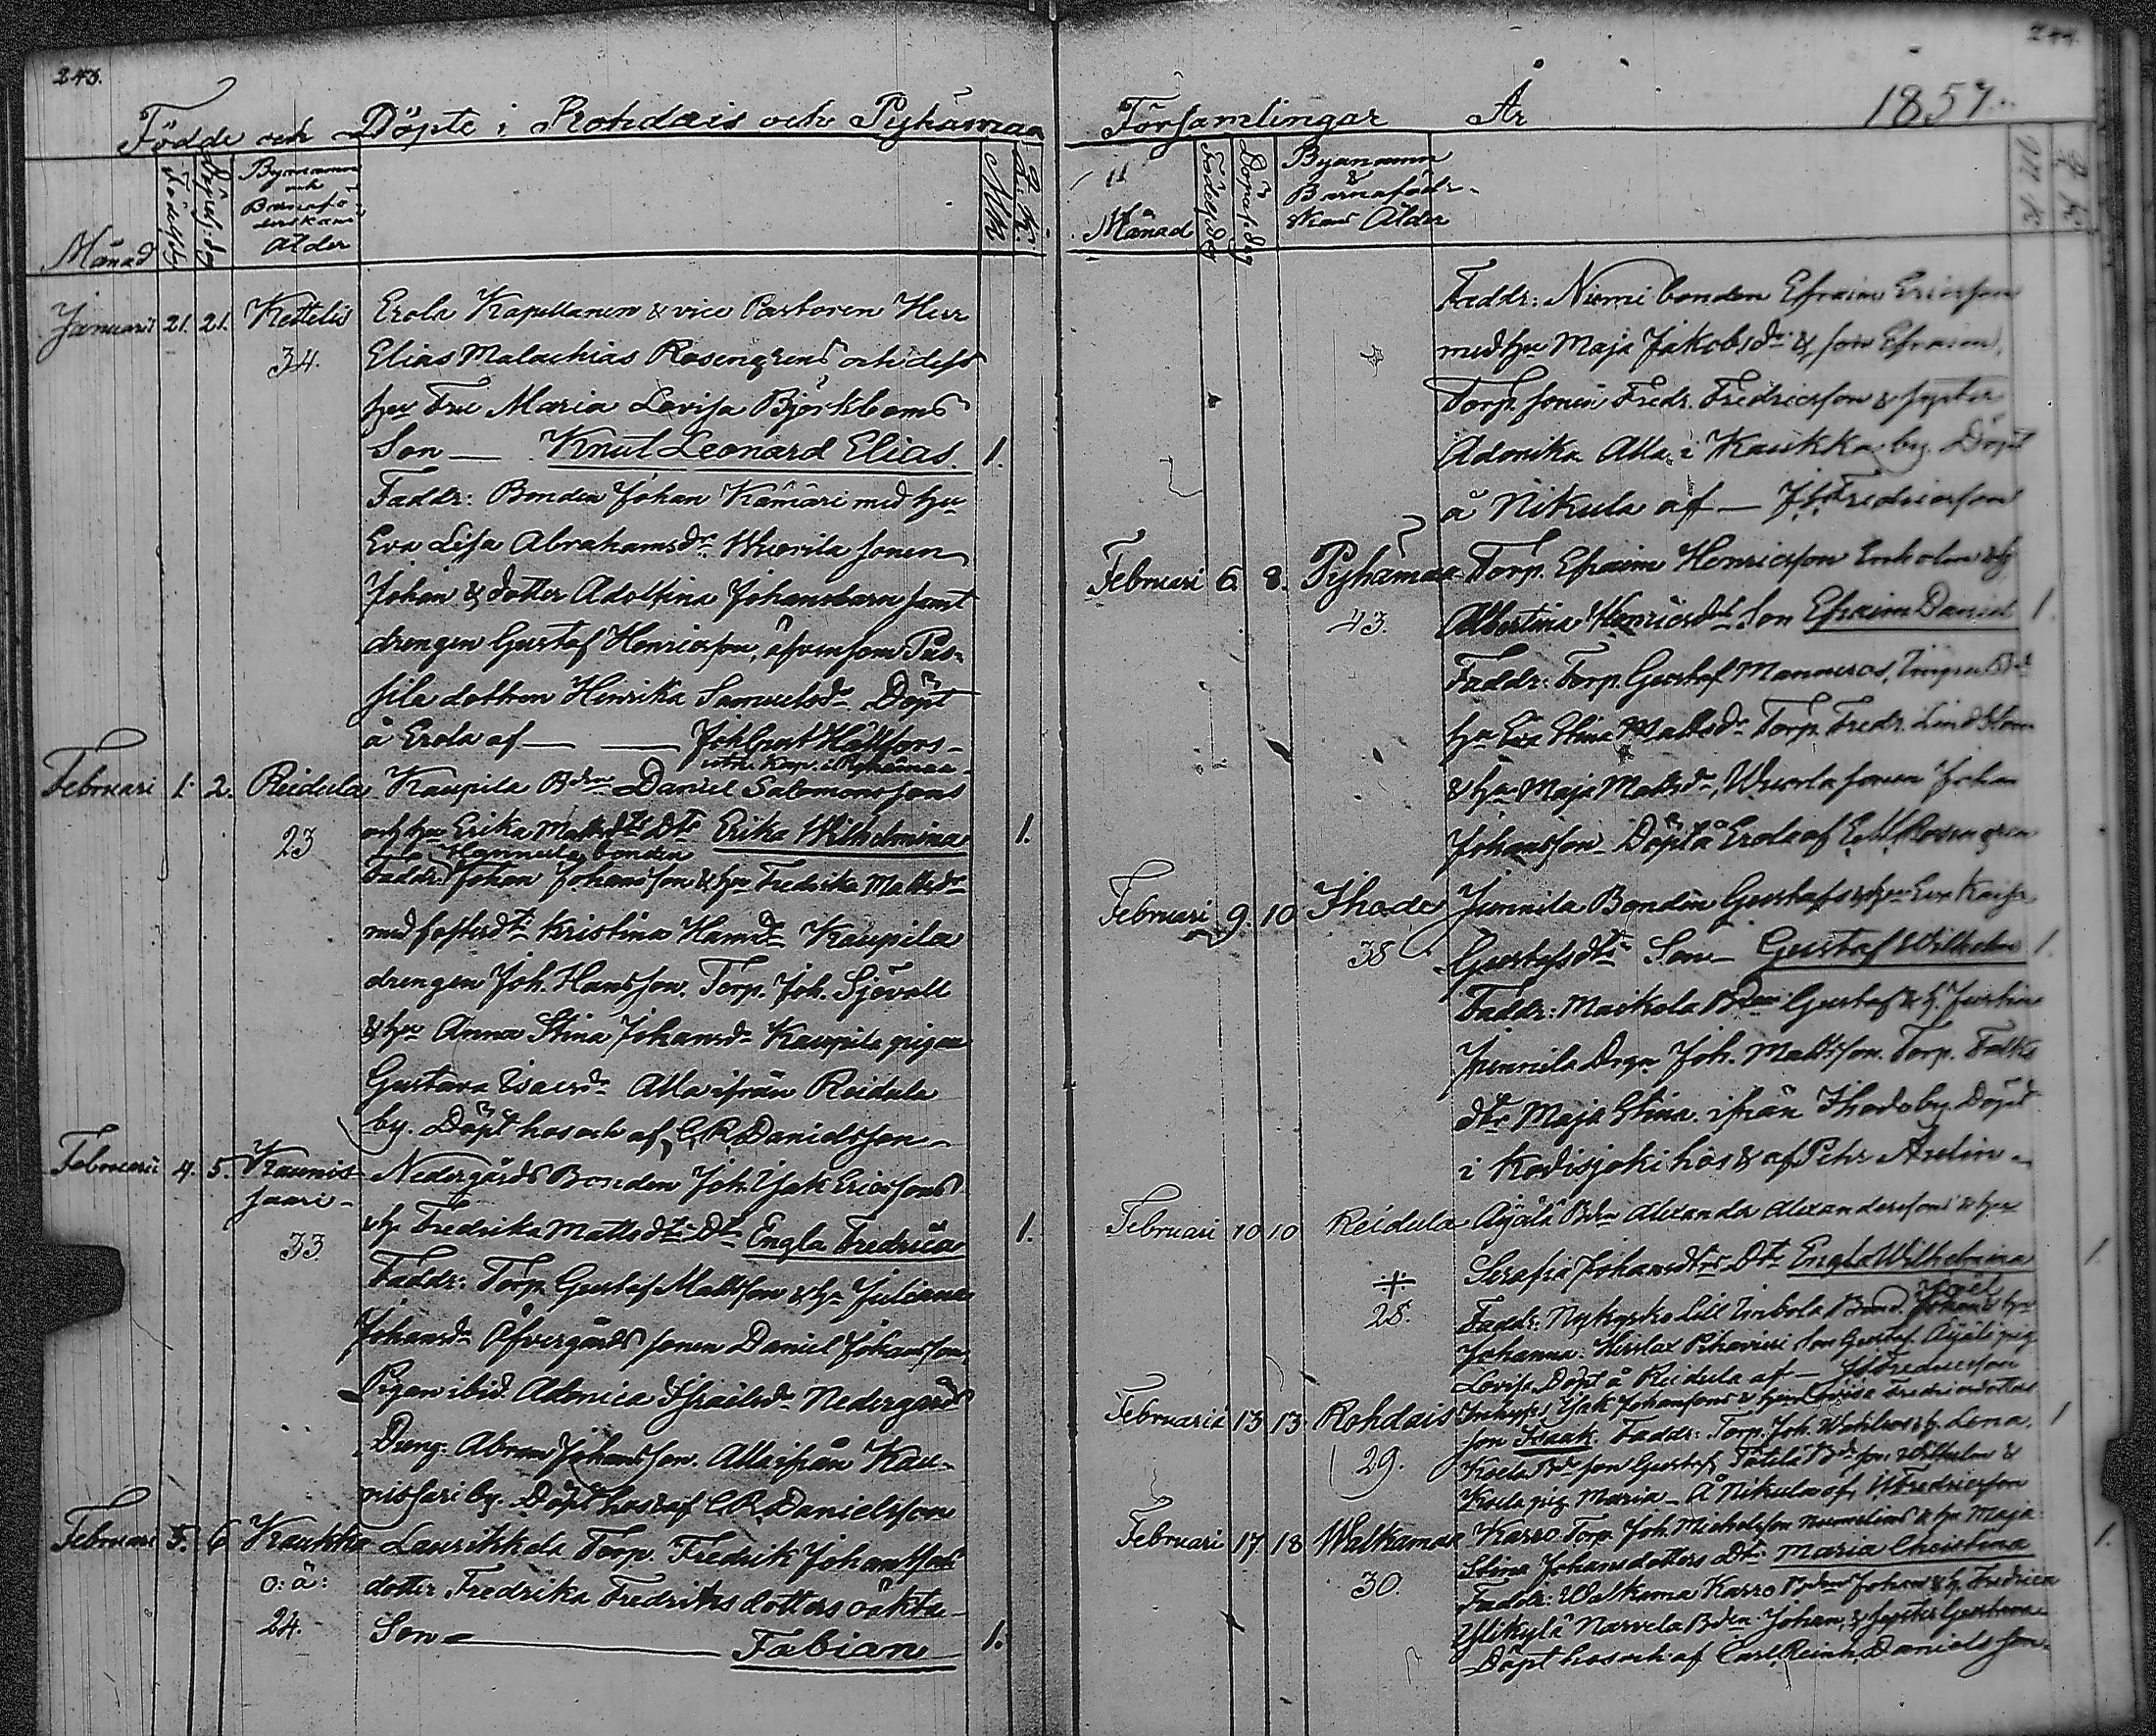 243.
Födde och Döpte i Rohdais och Pyhämaa
Månad
Födelsed.
Döpelsed.
Bynamn
och
Barnafö-
derskans
Ålder
M.K.
Q.K.
Januari 21. 21. Kettelis
34.
Erola Kapellanen & vice Pastoren Herr
Elias Malachias Rosengrens och dess
hu Fru Maria Lovisa Björkboms
Son — Knut Leonard Elias. 1.
Faddr: Bonden Johan Kämäri med hu
Eva Lisa Abrahamsdr Wuorila sonen
Johan & dotter Adolfina Johansbarn samt
drengen Gustaf Henricsson, äfvensom Pas-
sila dottren Henrika Samuelsdr Döpt
å Erola af — — Hällfors
Kap. i Pyhämaa
Februari 1. 2. Reidula
23
Kaupila Bdn Daniel Salomonssons
och hu Erika Mattsdts Dtr Erika Wilhelmina 1.
Hannula bonden
Faddr: Johan Johansson & hu Fredrika Mattsdr
med fosterdtr Kristina Hansdr Kaupila
drengen Joh. Hansson. Torp. Joh. Sjövall
& hu Anna Stina Johansdr Kaupila pigan
Gustava Isacsdr Alla ifrån Reidula
by. Döpt hos och af C. R. Danielsson
Februari 4. 5. Kaunis-
saari
33.
Nedergårds Bonden Joh. Isak Ericssons
& h. Fredrika Mattsdts Dtr Engla Fredrica 1.
Faddr: Torp. Gustaf Mattsson & hu Juliana
Johansdr Öfvergårds sonen Daniel Johansson,
Pigan ibid. Adonica Israelsdr Nedergårds
Dreng. Abram Johansson. Alla ifrån Kau-
nissari by. Döpt hos & af C. R. Danielsson
Februari 5. 6. Kaukka
o: ä:
24.
Laurikkala Torp. Fredrik Johanssons
dotter Fredrika Fredriksdotters oäkta
Son — Fabian 1.
244.
Församlingar År 1857.
Månad
Födelsedag
Döpelsedag
Bynamn
&
Barnaföder-
skans Ålder
M K
Q K.
Faddr: Niemi bonden Efraim Ericsson
med hu Maja Jakobsdr & son Efraim,
Torp. sonen Fredr. Fredricsson & syster
Adonika Alla i Kaukka by. Döpt
å Nikula af — Fredricsson
Februari 6. 8. Pyhämaa
43.
Torp. Efraim Henricsson Enholm & h.
Albertina Henricsdts Son Efraim Daniel 1.
Faddr: Torp. Gustaf Manneros,
hu Eva Stina Mattsdr Torp. Fredr. Lindblom
& hu Maja Mattsdr, Wuorla sonen Johan
Johansson. Döpt å Erola af E. M. Rosengren
Februari 9. 10 Ihode
38
Junnila Bonden Gustafs & hu Eva Kaisa
Gustafsdts Son — Gustaf Wilhelm 1.
Faddr: Maikola Bden Gustaf & h. Justina
Junnila Drgn Joh. Mattsson. Torp. Falks
dtr Maja Stina ifrån Ihode by. Döpt
i Kodisjoki hos & af Petr Axelin.
Februari 10 10 Reidula
28.
Äyälä Bdn Alexander Alexanderssons & hu
Serafia Johansdtrs Dtr Engla Wilhelmina 1
Faddr: Nykyrko Lill Bond. Joel & hu
Johanna. Pihavirri Son Gustaf. Äyälä pig.
Lovisa Döpt å Reidula af — Fredricsson
Februari 13 13 Rohdais
29.
Inhyss Isak Johanssons & hu Lovisa Fredricsdotters
son Isaak. Faddr: Torp. Joh. & h. Lena.
Koela Bdn son Gustaf, Bdn son Wilhelm &
Koela pig. Maria — Å Nikula af Fredricsson
Februari 17 18 Walkamaa
30.
Karro Torp. Joh. Michelsson & hu Maja
Stina Johansdotters Dtr Maria Christina 1.
Faddr: Walkama Karro Bden Johan & h. Fredrica
Ylikylä Narvela Bden Johan, & syster Gustava
Döpt hos och af Carl Reinh. Danielsson.